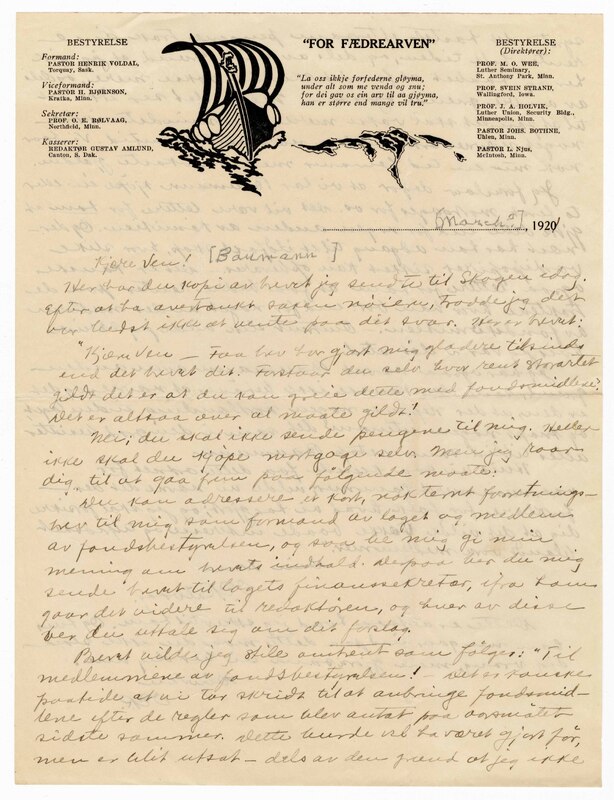 BESTYRELSE
Formand:
PASTOR HENRIK VOLDAL,
Torquay, Sask.
Viceformand:
PASTOR H. BJØRNSON,
Kratka, Minn.
Sekretær:
PROF. O. E. RØLVAAG,
Northfield, Minn.
Kasserer:
REDAKTØR GUSTAV AMLUND,
Canton, S. Dak.
"FOR FÆDREARVEN"
"La oss ikkje forfederne gløyma,
under alt som me venda og snu;
for dei gav os ein arv til aa gjøyma,
han er større end mange vil tru."
BESTYRELSE
(Direktører):
PROF. M. O. WEE,
Luther Seminary,
St. Anthony Park, Minn.
PROF. SVEIN STRAND,
Wallingford, Iowa.
PROF. J. A. HOLVIK,
Luther Union, Security Bldg.,
Minneapolis, Minn.
PASTOR JOHS. BOTHNE,
Uhlen, Minn.
PASTOR L. Njus,
McIntosh, Minn.
[March ?], 1920
Kjære Ven! [Baumann]
Her har du kopi av brevet jeg sendte til Skogen idag.
Efter at ha overtænkt saken nøiere, trodde jeg det
var bedst ikke at vente paa dit svar. Her er brevet:
"Kjære Ven — Faa brev har gjort mig gladere tilsinds
end det brevet dit. Forstaar du selv hvor rent storartet
gildt det er at du kan greie dette med fondsmidlene?
Det er altsaa over al maate gildt!
Nei, du skal ikke sende pengene til mig. Heller
ikke skal du kjøpe mortgage selv. Men jeg raar
dig til at gaa frem paa følgende maate:
Du kan adressere et kort, nøkternt forretnings-
brev til mig som formand av laget og medlem
av fondsbestyrelsen, og saa be mig gi min
mening om brevets indhold. Derpaa ber du mig
sende brevet til lagets finanssekretær, ifra ham
gaar det videre til redaktøren, og hver av disse
ber du uttale sig om dit forslag.
Brevet vilde jeg stile omtrent som følger: "Til
medlemmene av fondsbestyrelsen! — Det er kanske
paatide at vi tar skridt til at anbringe fondsmid-
lene efter de regler som blev antat paa aarsmøtet
sidste sommer. Dette burde vel ha været gjort før,
men er blit utsat — dels av den grund at jeg ikke